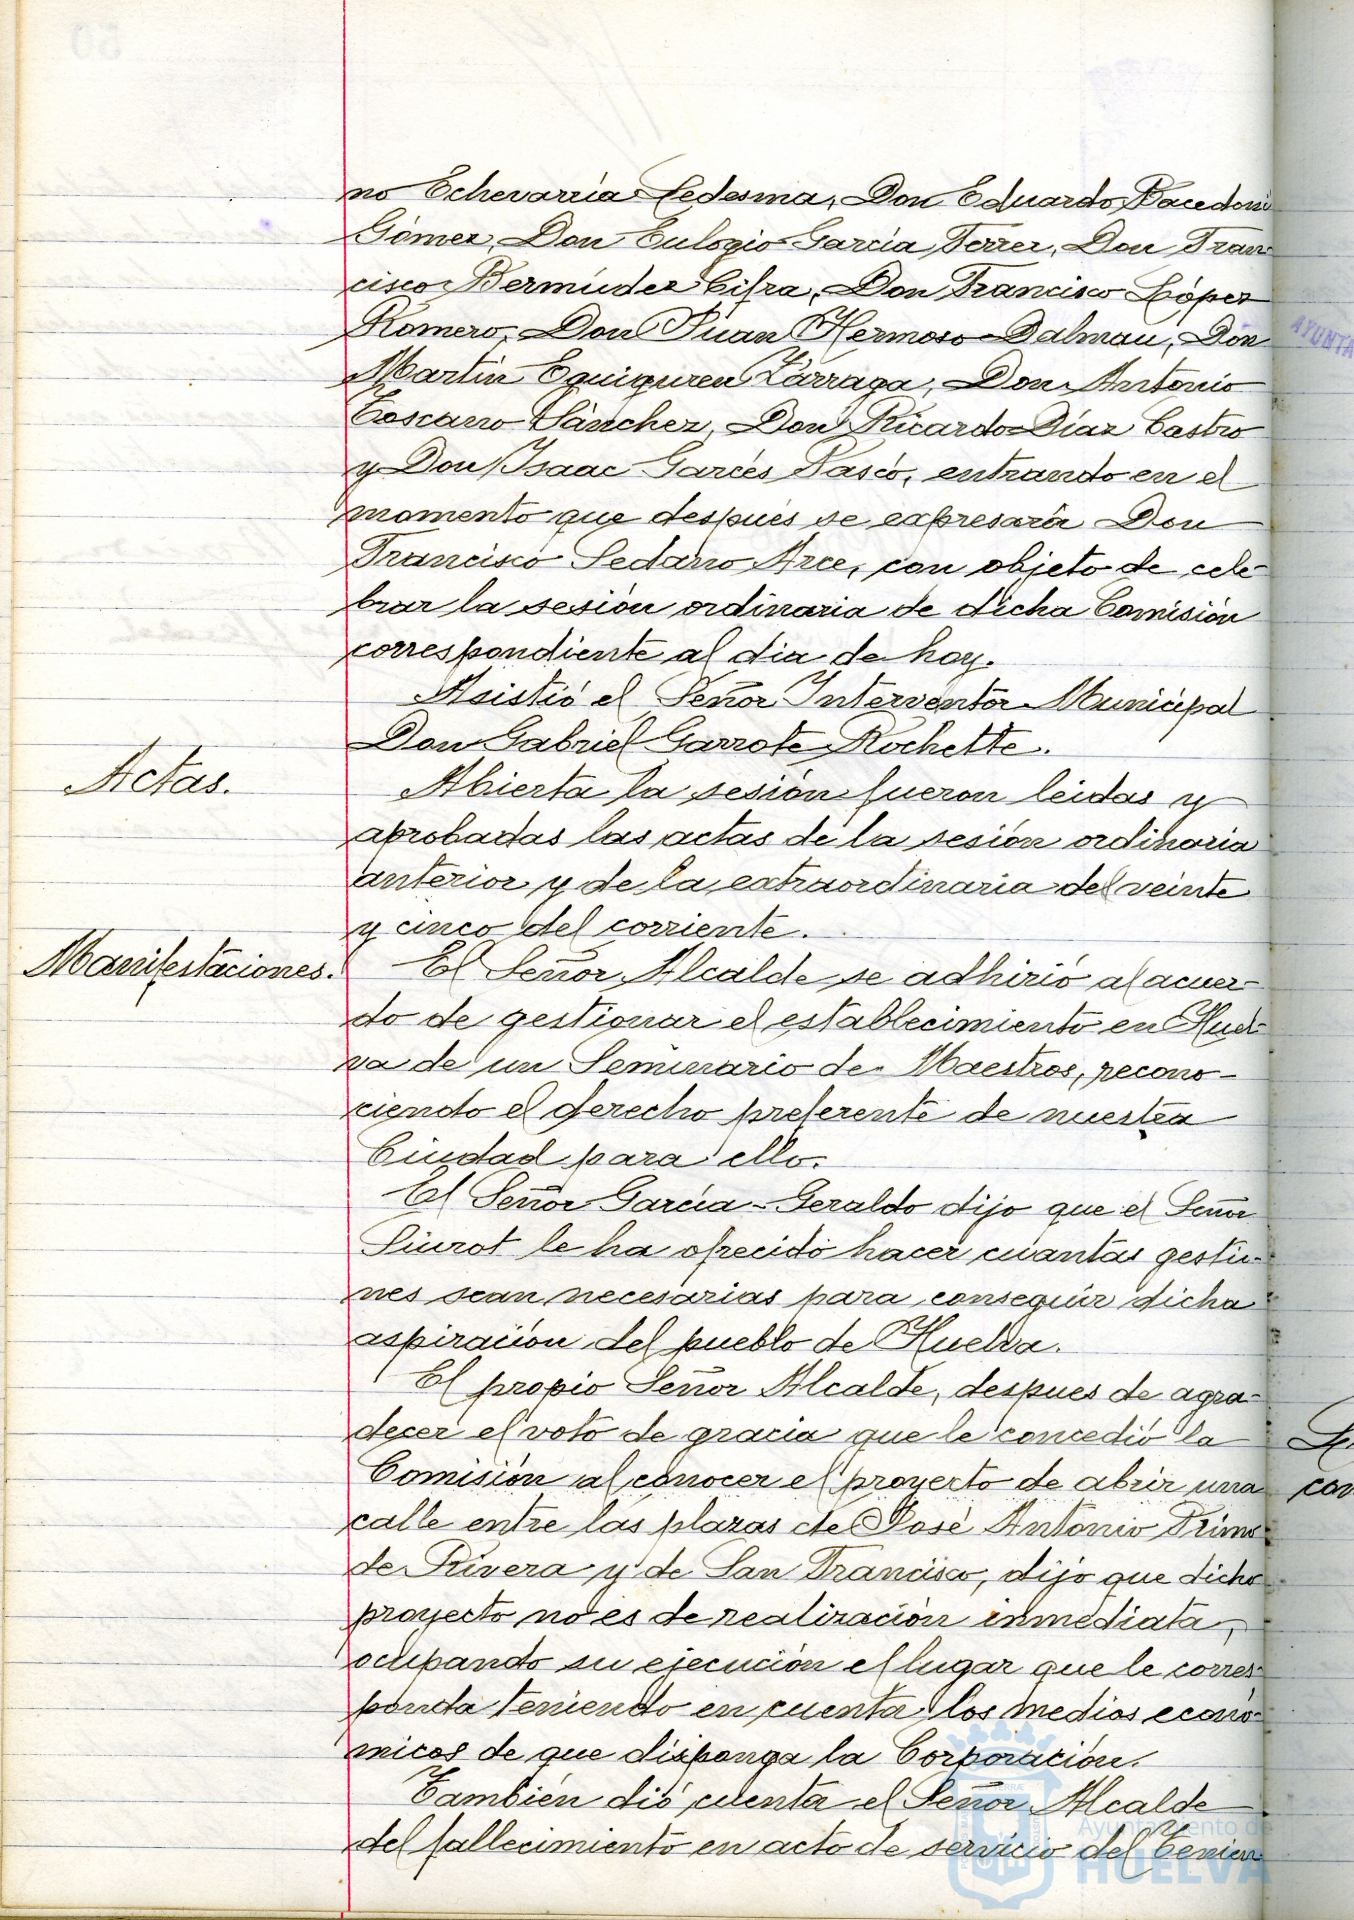 no Echevarría Ledesma, Don Eduardo Bacedoni
Gómez, Don Eulogio García Ferrer, Don Fran-
cisco Bermúdez Cifra, Don Francisco López
Romero, Don Juan Hermoso Dalmau, Don
Martín Eguiguren Zárraga, Don Antonio
Toscano Sánchez, Don Ricardo Díaz Castro
y Don Isaac Garcés Pascó, entrando en el
momento que después se expresará Don
Francisco Sedano Arce, con objeto de cele-
brar la sesión ordinaria de dicha Comisión
correspondiente al dia de hoy.
Asistió el Señor Interventor Municipal
Don Gabriel Garrote Rochette.
Actas.
Abierta la sesión fueron leidas y
aprobadas las actas de la sesión ordinaria
anterior y de la extraordinaria del veinte
y cinco del corriente.
Manifestaciones.
El Señor Alcalde se adhirió al acuer-
do de gestionar el establecimiento en Huel-
va de un Seminario de Maestros, recono-
ciendo el derecho preferente de nuestra
Ciudad para ello.
El Señor García-Geraldo dijo que el Señor
Siurot le ha ofrecido hacer cuantas gestio-
nes sean necesarias para conseguir dicha
aspiración del pueblo de Huelva.
El propio Señor Alcalde, despues de agra-
decer el voto de gracia que le concedió la
Comisión al conocer el proyecto de abrir una
calle entre las plazas de José Antonio Primo
de Rivera y de San Francisco, dijo que dicho
proyecto no es de realización inmediata,
ocupando su ejecución el lugar que le corres-
ponda teniendo en cuenta los medios econó-
micos de que disponga la Corporación.
También dió cuenta el Señor Alcalde
del fallecimiento en acto de servicio del Tenien-
Ayuntamiento de
HUELVA
AYUNTA
con